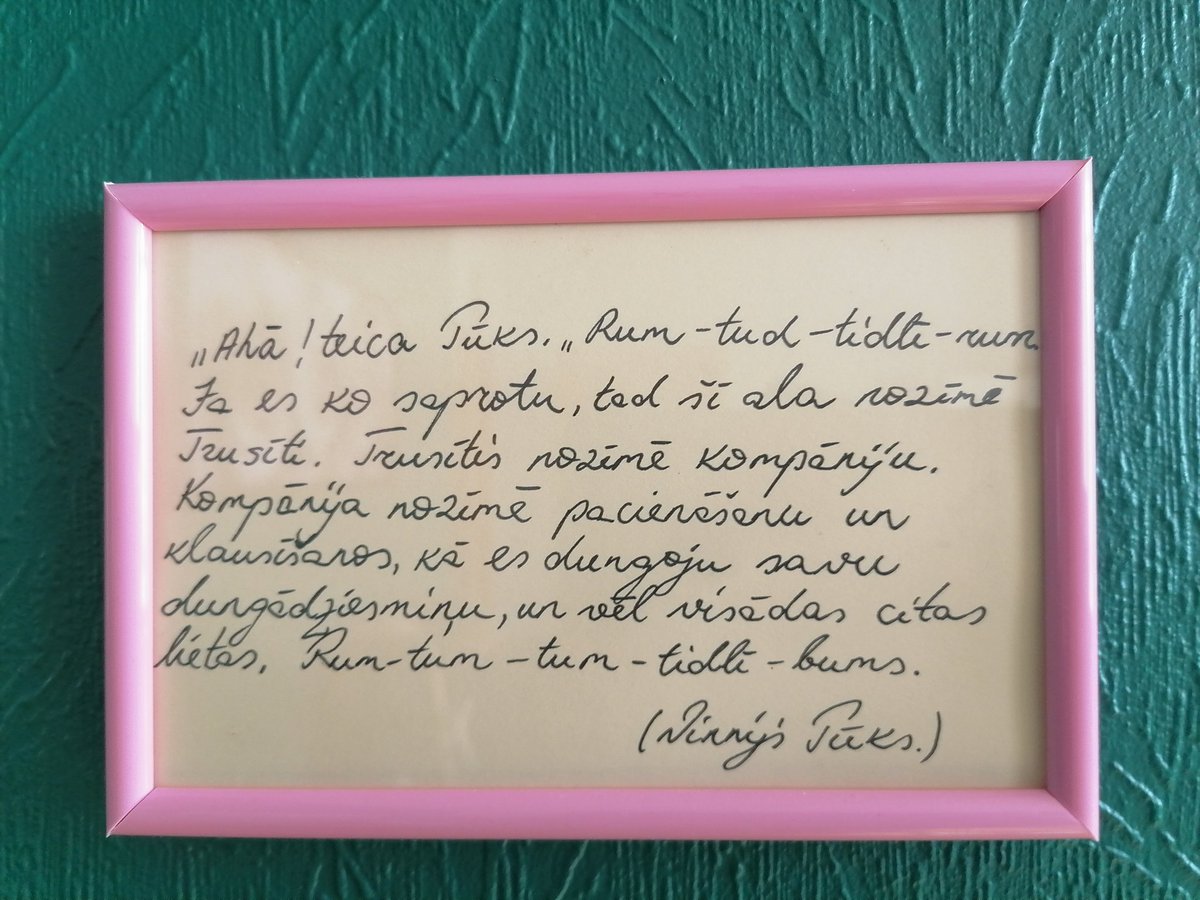 „Ahā! teica Pūks. „Rum-tud-tidlī-rum.
Ja es ko saprotu, tad šī ala nozīmē
Trusīti. Trusītis nozīmē kompāniju.
Kompānija nozīmē pacienāšanu un
klausīšanos, kā es dungoju savu
dungādziesmiņu, un vēl visādas citas
lietas. Rum-tum-tum-tidlī-bums.
(Vinnijs Pūks.)